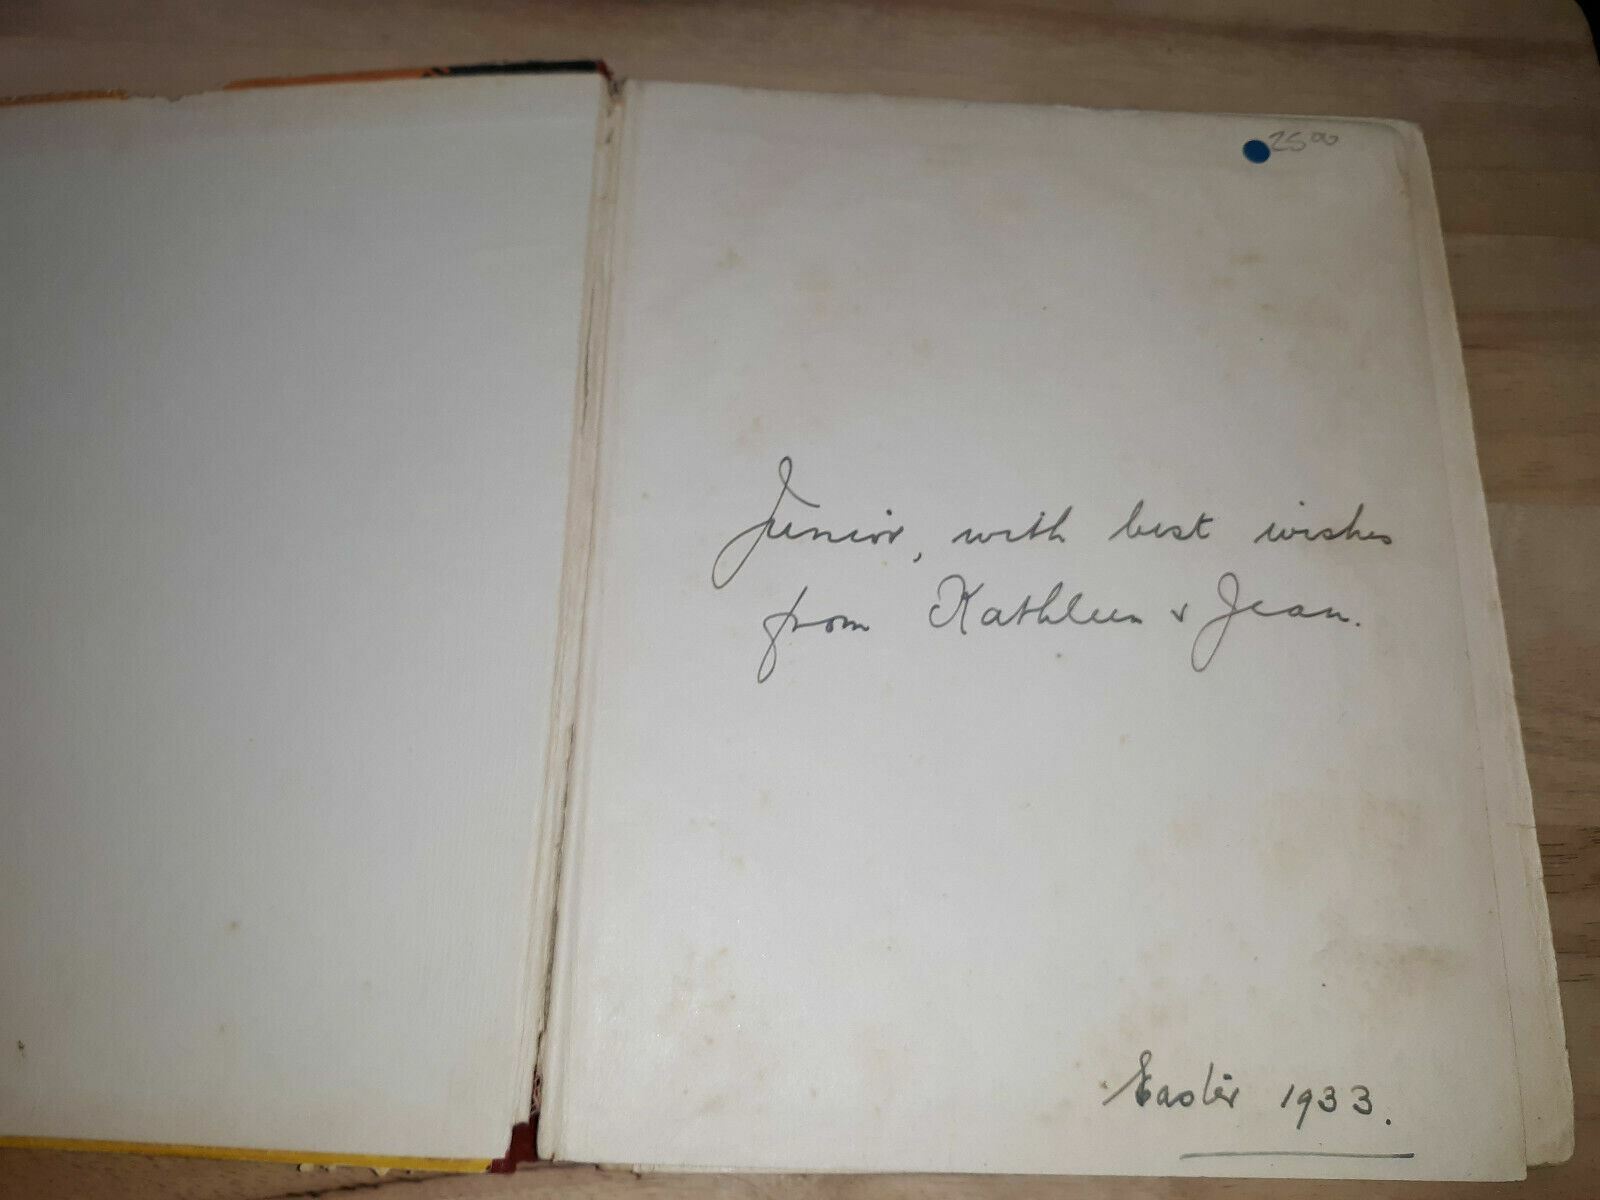 25 00
Junior, with best wishes
from Kathleen & Jean.
Easter 1933.